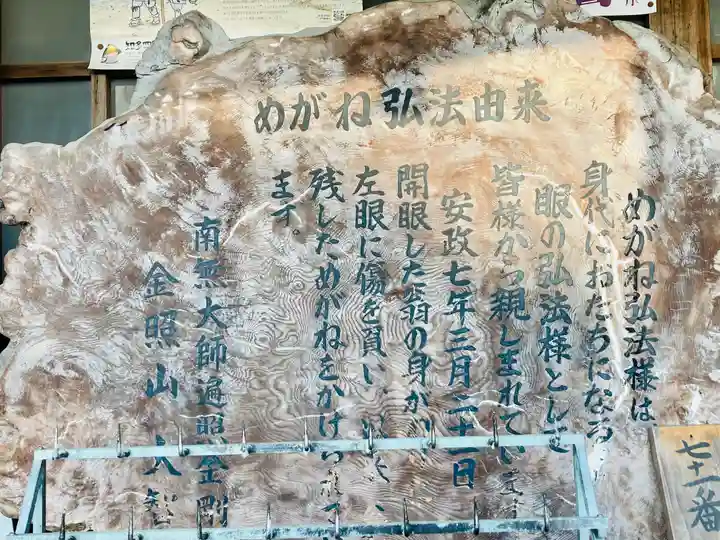 めがね弘法由来
めがね弘法様は
身代におたちになら
眼の弘法様として
皆様から親しまれています
安政七年三月二十一日
開眼した翁の身が
左眼に傷を負い、
残しためがねをかけられて
ます。
南無大師遍照金剛
金照山大智
七十一番
知多四